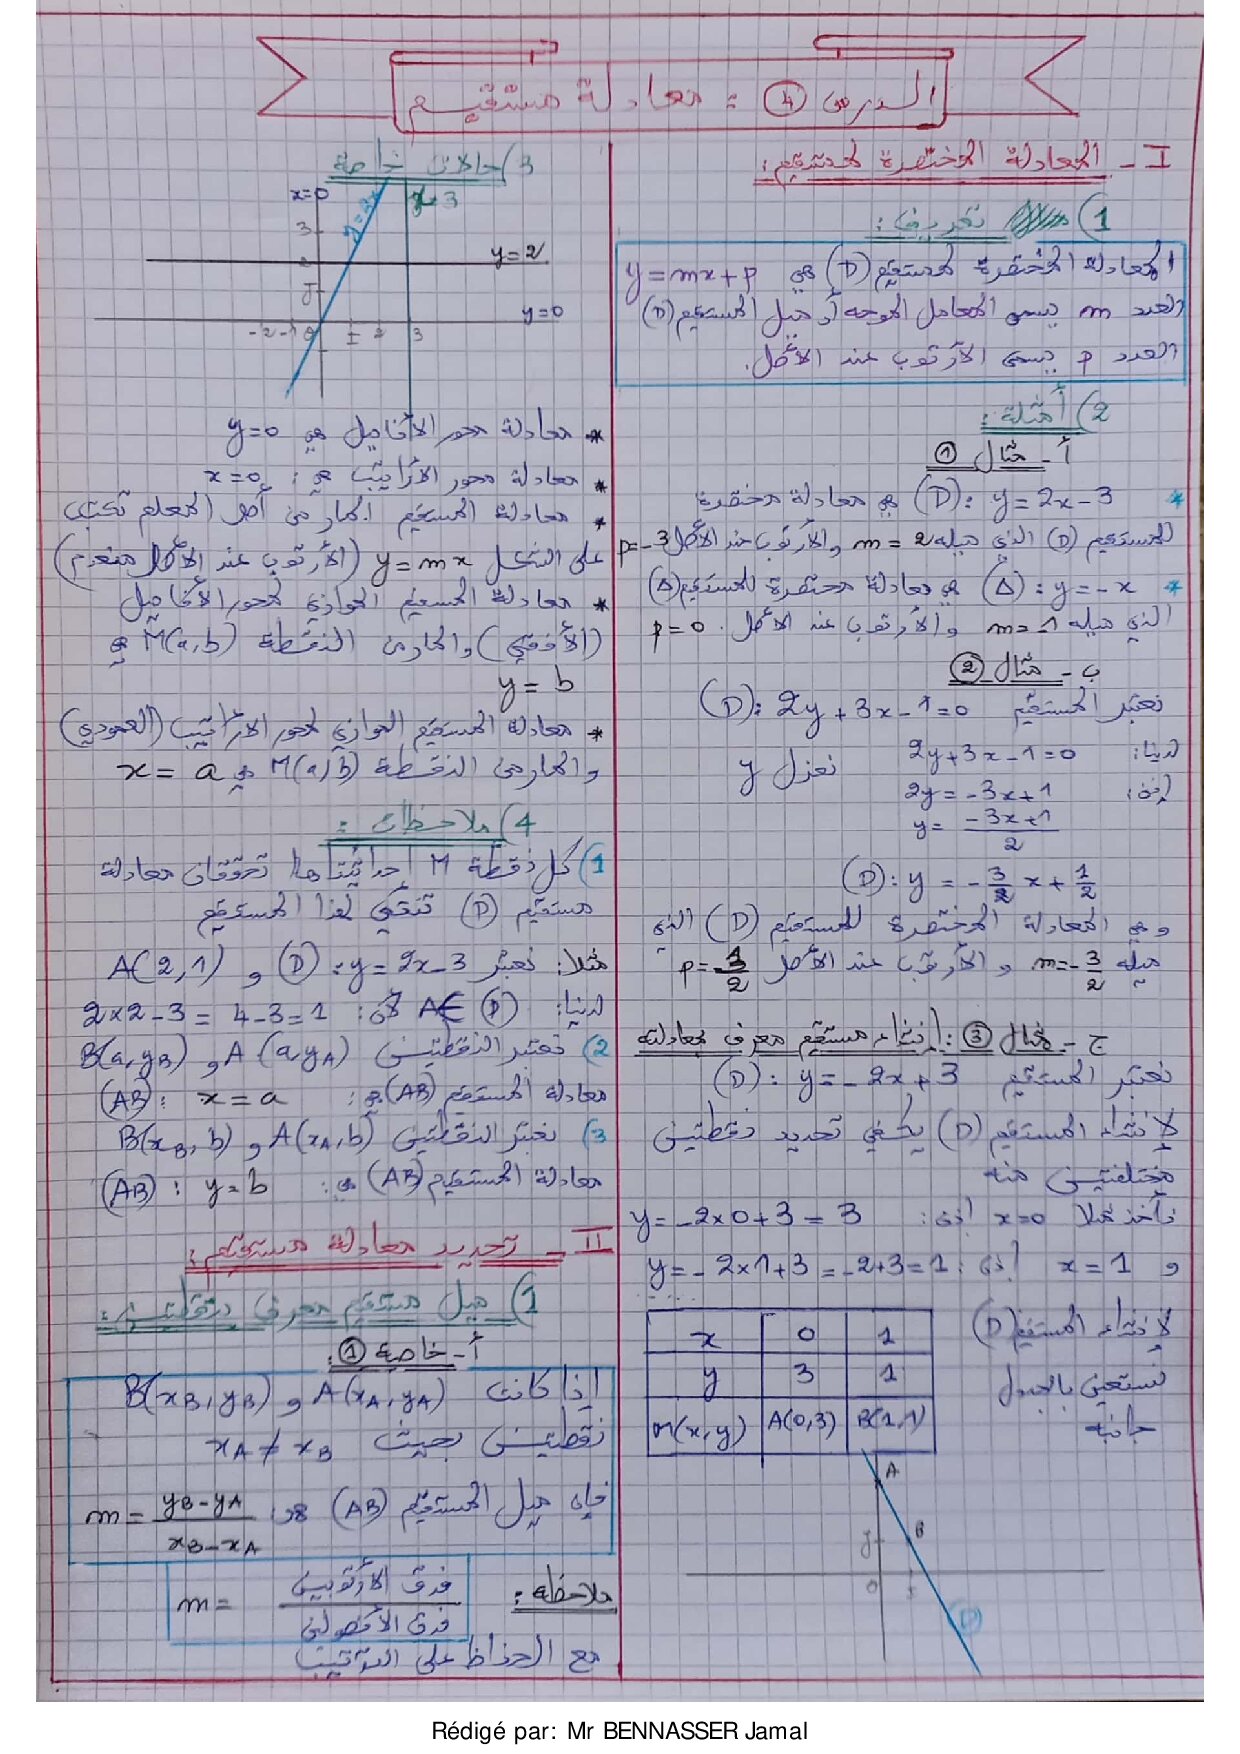 الدرس ④ : معادلة مستقيم
I - المعادلة المختصرة لمستقيم:
1) تعريف:
المعادلة المختصرة لمستقيم (D) هي y = mx + p
العدد m يسمى المعامل الموجه أو ميل المستقيم (D)
العدد p يسمى الأرتوب عند الأصل.
2) أمثلة:
أ - مثال ①
* (D): y = 2x - 3 هي معادلة مختصرة
للمستقيم (D) الذي ميله m = 2 والأرتوب عند الأصل p = -3
* (Δ): y = -x هي معادلة مختصرة للمستقيم (Δ)
الذي ميله m = -1 والأرتوب عند الأصل p = 0.
ب - مثال ②
نعتبر المستقيم (D): 2y + 3x - 1 = 0
لدينا: 2y + 3x - 1 = 0 نعزل y
إذن: 2y = -3x + 1
y = (-3x + 1)/2
(D): y = -3/2 x + 1/2
وهي المعادلة المختصرة للمستقيم (D) الذي
ميله m = -3/2 والأرتوب عند الأصل p = 1/2
ج - مثال ③: إنشاء مستقيم معرف بمعادلته
نعتبر المستقيم (D): y = -2x + 3
لإنشاء المستقيم (D) يكفي تحديد نقطتين
مختلفتين منه
نأخذ مثلا x = 0 إذن: y = -2×0 + 3 = 3
و x = 1 إذن: y = -2×1 + 3 = -2 + 3 = 1
لإنشاء المستقيم (D)
نستعين بالجدول
جانبه
x 0 1
y 3 1
M(x,y) A(0,3) B(1,1)
A
B
J
O I
(D)
3) حالات خاصة
x=0 y=2x x=3
3
y=2
J
y=0
-2 -1 0 I 2 3
* معادلة محور الأفاصيل هي y = 0
* معادلة محور الأراتيب هي: x = 0
* معادلة المستقيم المار من أصل المعلم تكتب
على الشكل y = mx (الأرتوب عند الأصل منعدم)
* معادلة المستقيم الموازي لمحور الأفاصيل
(الأفقي) والمار من النقطة M(a,b) هي
y = b
* معادلة المستقيم الموازي لمحور الأراتيب (العمودي)
والمار من النقطة M(a,b) هي x = a
4) ملاحظات:
1) كل نقطة M إحداثيتاها تحققان معادلة
مستقيم (D) تنتمي لهذا المستقيم
مثلا: نعتبر (D): y = 2x - 3 و A(2,1)
لدينا: A ∈ (D) لأن: 2×2 - 3 = 4 - 3 = 1
2) نعتبر النقطتين A(a,yA) و B(a,yB)
معادلة المستقيم (AB) هي: (AB): x = a
3) نعتبر النقطتين A(xA,b) و B(xB,b)
معادلة المستقيم (AB) هي: (AB): y = b
II - تحديد معادلة مستقيم:
1) ميل مستقيم معرف بنقطتين:
أ - خاصية ①:
إذا كانت A(xA,yA) و B(xB,yB)
نقطتين بحيث xA ≠ xB
فإن ميل المستقيم (AB) هو m = (yB - yA)/(xB - xA)
ملاحظة: m = فرق الأرتوبين / فرق الأفصولين
مع الحفاظ على الترتيب
Rédigé par: Mr BENNASSER Jamal